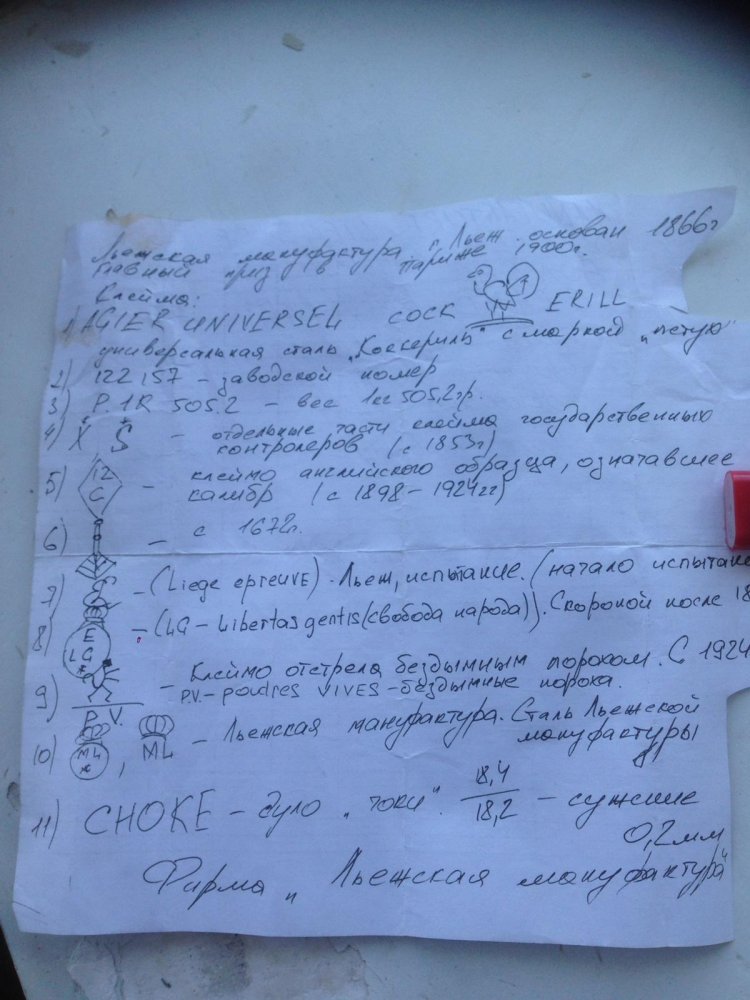 Льежская мануфактура „ Льеж. основан 1866г
главный приз в Париже 1900г.
Клейма:
1) AGIER UNIVERSEL COCK ERILL
универсальная сталь „Коккериль" с маркой „петух"
2) 122157 – заводской номер
3) P. 1R 505.2 – вес 1кг 505,2гр.
4) X S – отдельные части клейма государственных
контролеров (с 1853г)
5) 12 C – клеймо английского образца, означавшее
калибр (с 1898 – 1924гг)
6) – с 1672г.
7) – (Liege epreuve). Льеж, испытание. (начало испытан
8) E LG * – (LG – Libertas gentis (свобода народа)). С короной после 18
9) P.V. – Клеймо отстрела бездымным порохом. С 1924
P.V. – poudres VIVES – бездымные пороха.
10) ML * , ML – Льежская мануфактура. Сталь Льежской
мануфактуры
11) CHOKE – дуло „чок". 18,4 / 18,2 – сужение
0,2мм
Фирма „ Льежская мануфактура"